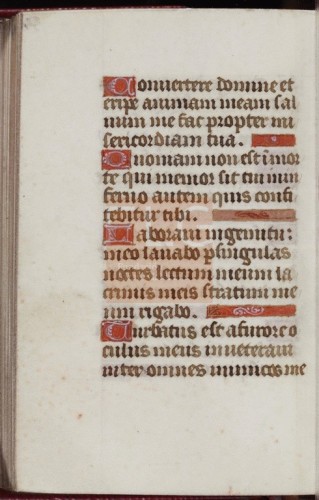 Convertere domine et
eripe animam meam sal
uum me fac propter mi
sericordiam tua.
Quoniam non est i̅ mor
te qui memor sit tui in in
ferno autem quis confi
tebitur tibi.
Laboraui in gemitu:
meo lauabo p singulas
noctes lectum meum la
crimis meis stratum me
um rigabo.
Turbatus est a furore o
culus meus inueteraui
inter omnes inimicos me